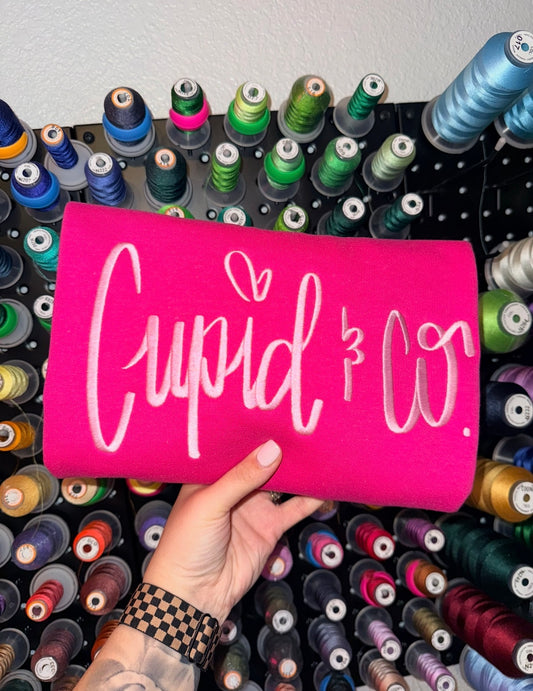 Cupid & Co.